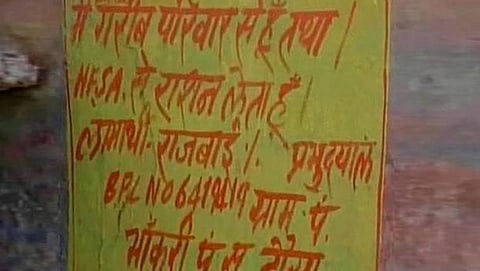 मैं गरीब परिवार से हूँ तथा।
NFSA. से राशन लेता हूँ।
लाभार्थी-राजबाई।. प्रभुदयाल
BPL NO 6419419 ग्राम पं.
भाँकरी पं स